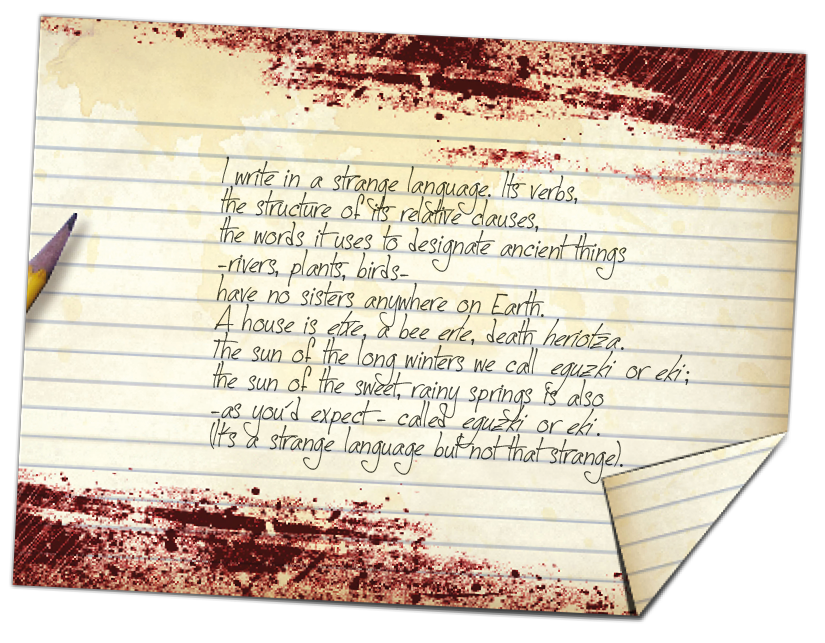 I write in a strange language. Its verbs,
the structure of its relative clauses,
the words it uses to designate ancient things
-rivers, plants, birds-
have no sisters anywhere on Earth.
A house is etxe, a bee erle, death heriotza.
The sun of the long winters we call eguzki or eki;
the sun of the sweet, rainy springs is also
-as you'd expect- called eguzki or eki.
(It's a strange language but not that strange).